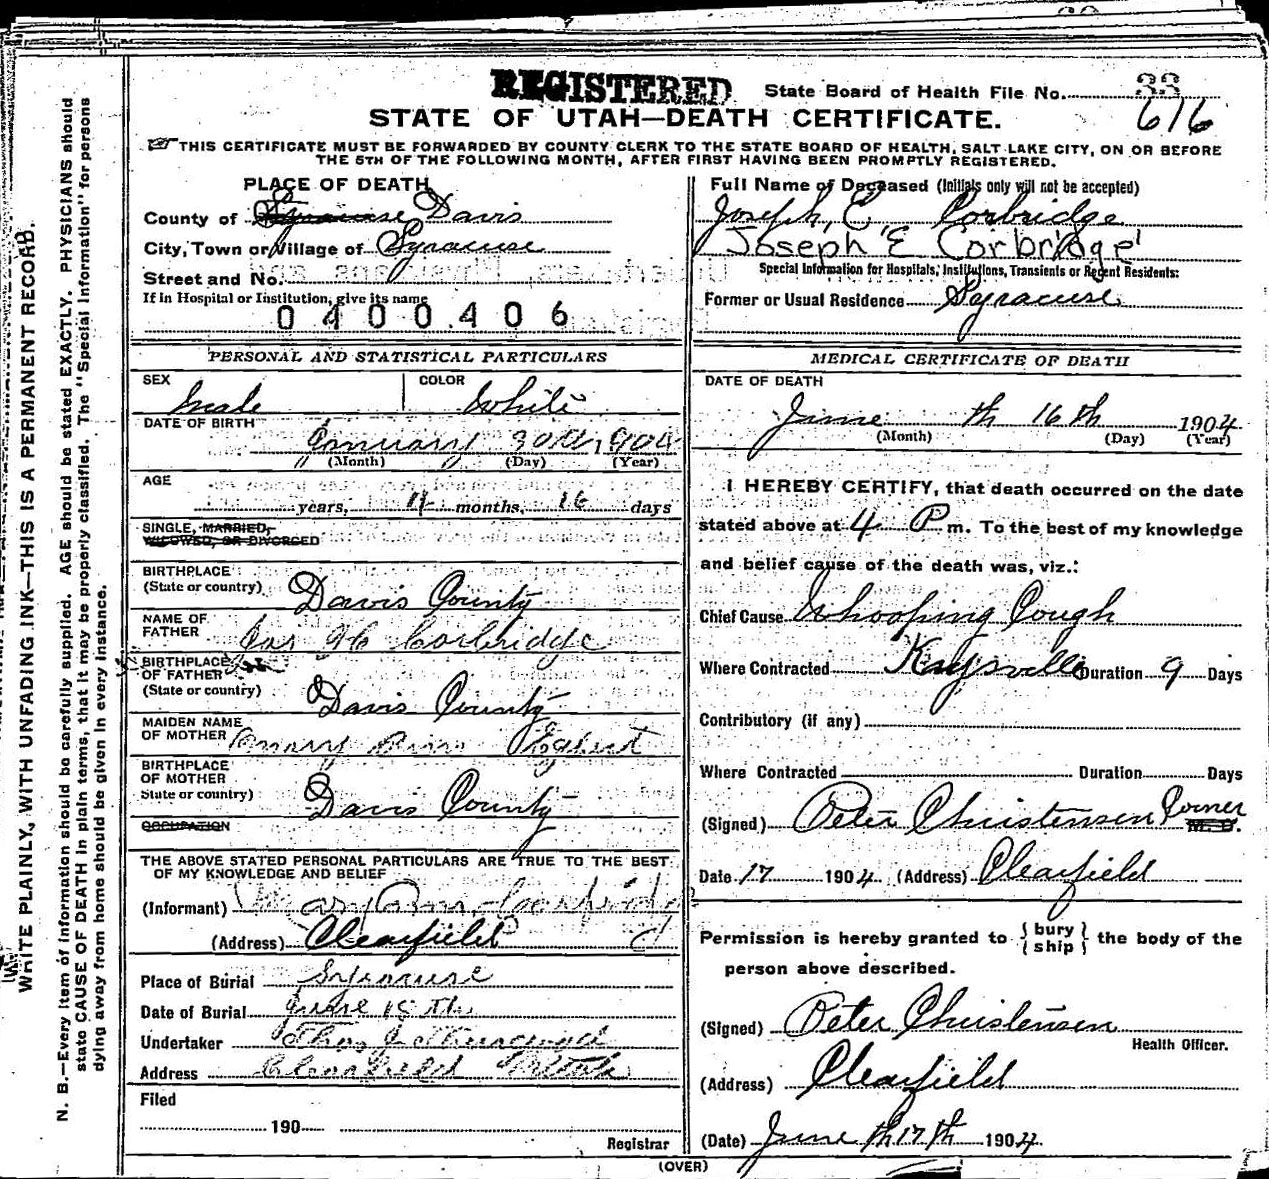 REGISTERED
State Board of Health File No. 33
616
STATE OF UTAH—DEATH CERTIFICATE.
THIS CERTIFICATE MUST BE FORWARDED BY COUNTY CLERK TO THE STATE BOARD OF HEALTH, SALT LAKE CITY, ON OR BEFORE
THE 5TH OF THE FOLLOWING MONTH, AFTER FIRST HAVING BEEN PROMPTLY REGISTERED.
WRITE PLAINLY, WITH UNFADING INK—THIS IS A PERMANENT RECORD.
N. B.—Every item of information should be carefully supplied. AGE should be stated EXACTLY. PHYSICIANS should
state CAUSE OF DEATH in plain terms, that it may be properly classified. The "Special Information" for persons
dying away from home should be given in every instance.
PLACE OF DEATH
County of Syracuse Davis
City, Town or Village of Syracuse
Street and No.
If in Hospital or Institution, give its name
0400406
PERSONAL AND STATISTICAL PARTICULARS
SEX COLOR
Male White
DATE OF BIRTH
January 30th, 1904
(Month) (Day) (Year)
AGE
years, 4 months, 16 days
SINGLE, MARRIED,
WIDOWED, OR DIVORCED
BIRTHPLACE
(State or country) Davis County
NAME OF
FATHER Corbridge
BIRTHPLACE
OF FATHER
(State or country) Davis County
MAIDEN NAME
OF MOTHER Mary Ann Egbert
BIRTHPLACE
OF MOTHER
State or country) Davis County
OCCUPATION
THE ABOVE STATED PERSONAL PARTICULARS ARE TRUE TO THE BEST
OF MY KNOWLEDGE AND BELIEF
(Informant) Mary Ann Corbridge
(Address) Clearfield
Place of Burial Syracuse
Date of Burial June 18 th
Undertaker Thos J
Address Clearfield Utah
Filed
190
Registrar
Full Name of Deceased (Initials only will not be accepted)
Joseph E Corbridge
Joseph E Corbridge
Special Information for Hospitals, Institutions, Transients or Recent Residents:
Former or Usual Residence Syracuse
MEDICAL CERTIFICATE OF DEATH
DATE OF DEATH
June th 16 th 1904
(Month) (Day) (Year)
I HEREBY CERTIFY, that death occurred on the date
stated above at 4 P m. To the best of my knowledge
and belief cause of the death was, viz.:
Chief Cause Whooping Cough
Where Contracted Kaysville Duration 9 Days
Contributory (if any)
Where Contracted Duration Days
(Signed) Peter Christensen Corner M. D.
Date 17 1904 (Address) Clearfield
Permission is hereby granted to {bury
ship} the body of the
person above described.
(Signed) Peter Christensen
Health Officer.
(Address) Clearfield
(Date) June th 17 th 1904.
(OVER)